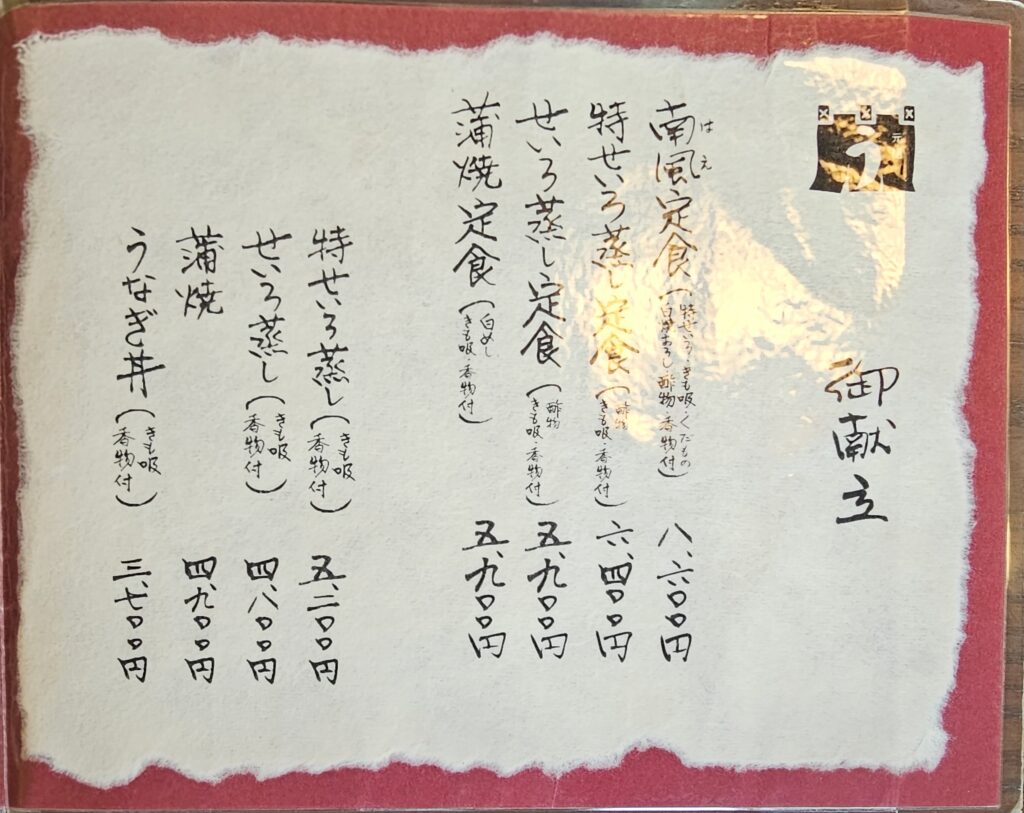 う
元
御献立
南風定食(特せいろ・きも吸・くだもの
白焼おろし・酢物・香物付)八、六〇〇円
はえ
特せいろ蒸し定食(酢物
きも吸・香物付)六、四〇〇円
せいろ蒸し定食(酢物
きも吸・香物付)五、九〇〇円
蒲焼定食(白めし
きも吸・香物付)五、九〇〇円
特せいろ蒸し(きも吸
香物付)五、二〇〇円
せいろ蒸し(きも吸
香物付)四、八〇〇円
蒲焼 四、九〇〇円
うなぎ丼(きも吸
香物付)三、七〇〇円